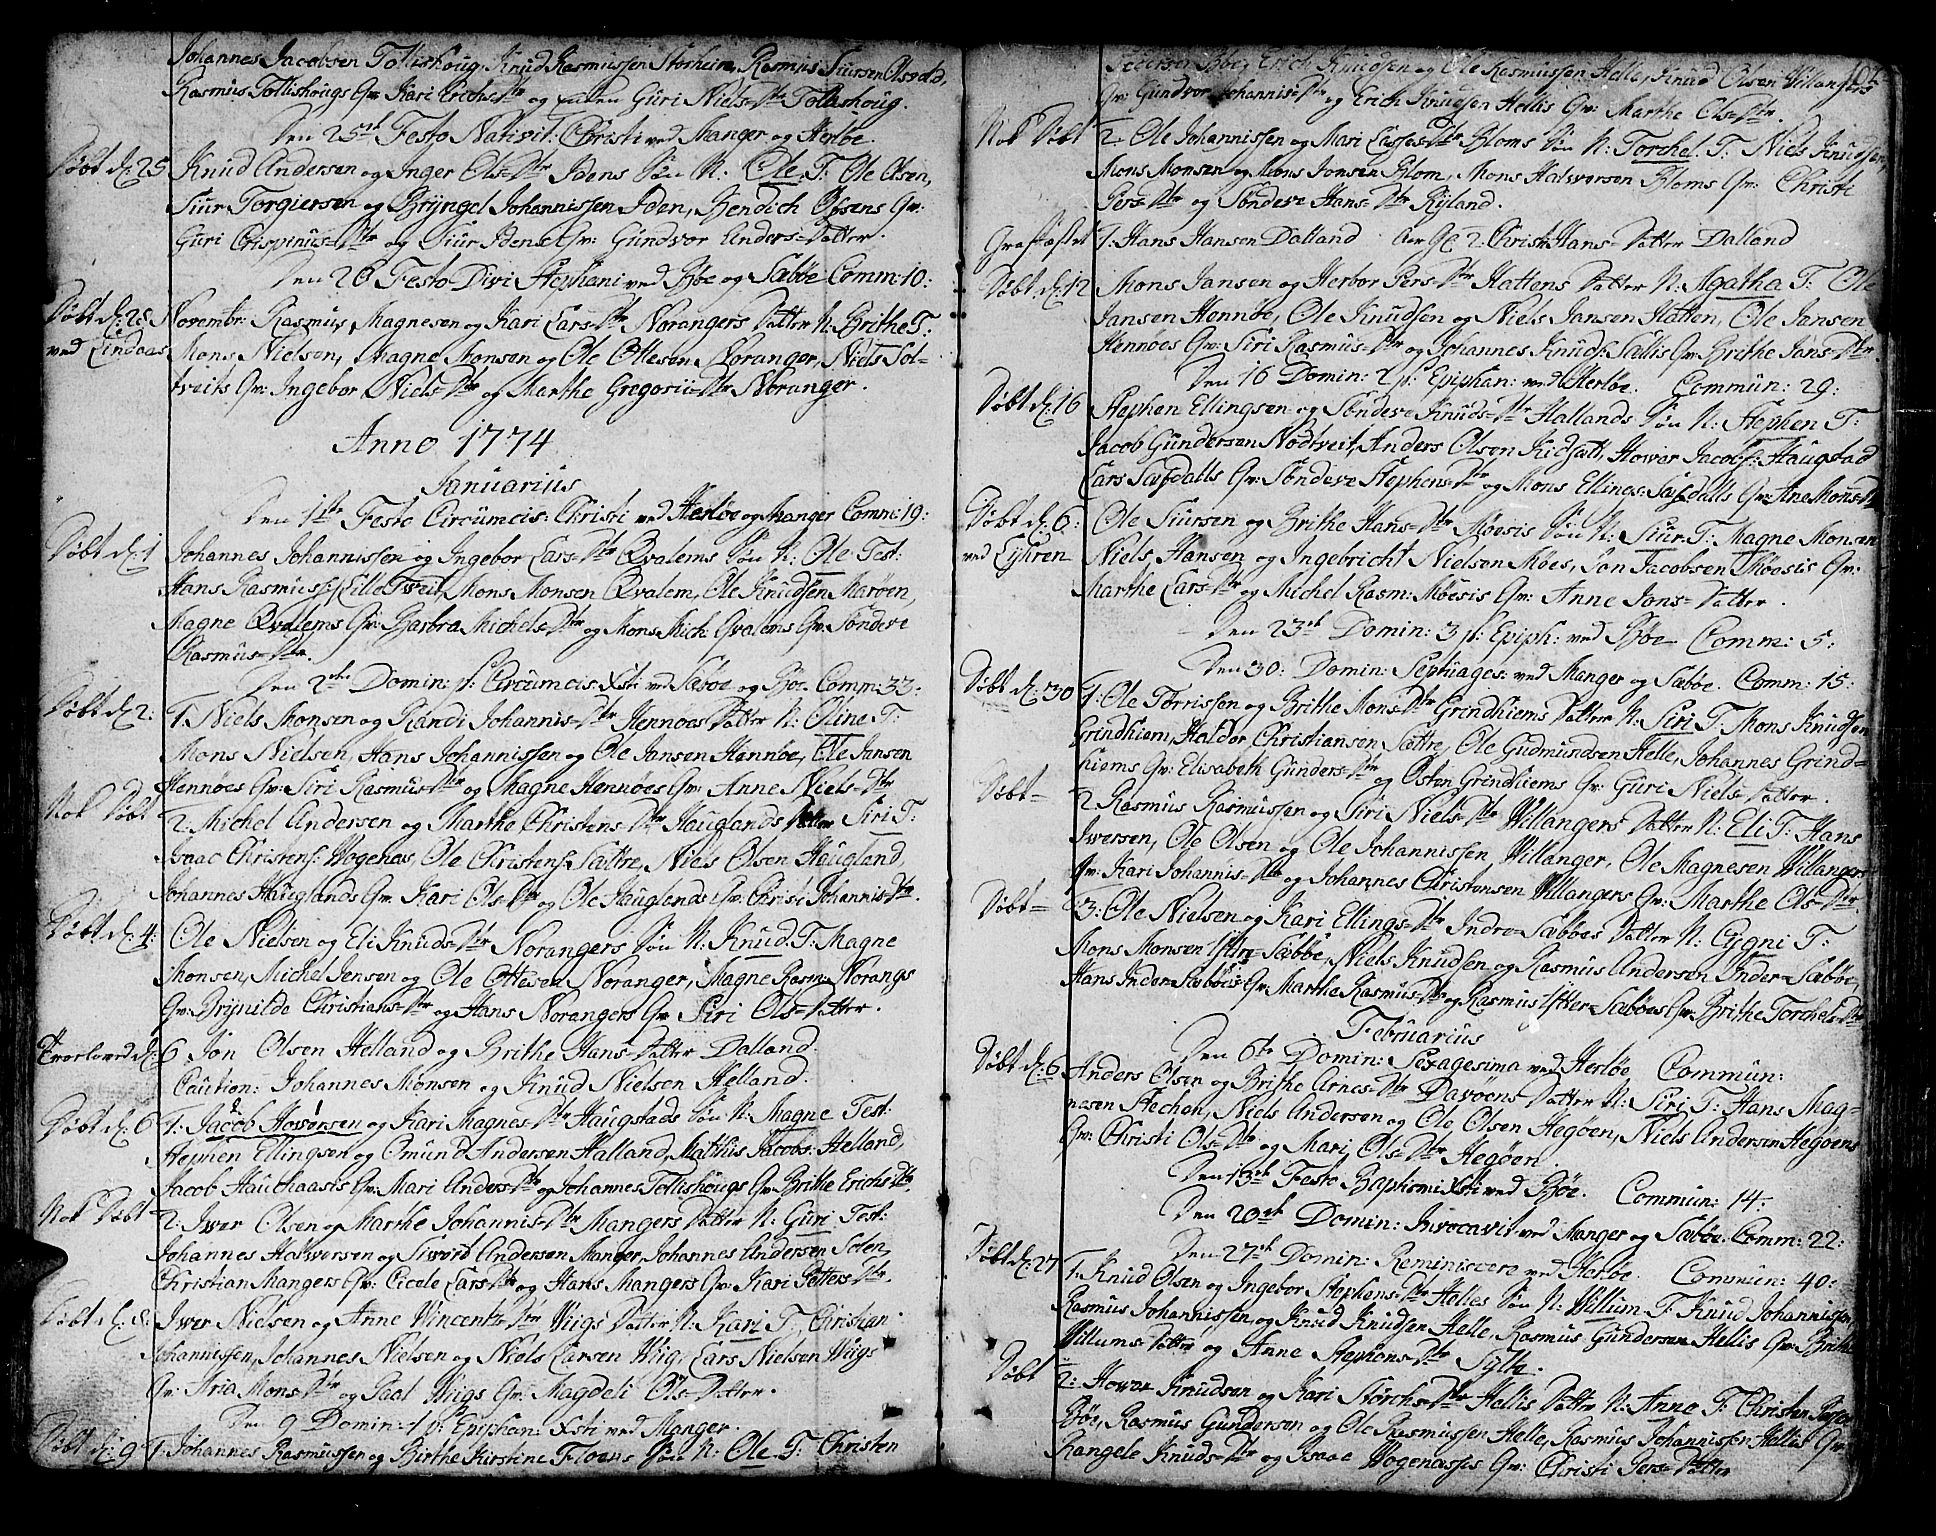 Johannes Jacobsen Tollishoug, Knud Rasmussen Storheim, Rasmus Siursen Olsvold,
Rasmus Tollishougs Qv: Kari Erichs=Dtr og Guri Niels=Dtr Tollishoug.
Den 25de Festo Nativit: Christi ved Manger og Herløe.
Døbt d: 25 Knud Andersen og Inger Ols=Dtr Idens Søn N: Ole, T: Ole Olsen,
Siur Torgiersen og Bryngel Johannissen Iden, Bendich Olsens Qv:
Guri Crispinus=Dtr og Siur Idens Qv: Gundvor Anders=Datter.
Den 26 Festo Divi Stephani ved Bøe og Sæbøe Comm: 10:
Døbt d: 28 Novembr: Rasmus Magnesen og Kari Lars=Dtr Norangers Datter N: Brithe T:
ved Lindaas Mons Nielsen, Magne Monsen og Ole Ottesen Noranger, Niels Sol=
tveits Qv: Ingebor Niels=Dtr og Marthe Gregorii=Dtr Noranger.
Anno 1774
Januarius
Den 1ste Festo Circumcis: Christi ved Herløe og Manger Comm: 19:
Døbt d: 1 Johannes Johannissen og Ingebor Lars=Dtr Qvalems Søn N: Ole Test:
Hans Rasmuss: Lille Tveit, Mons Monsen Qvalem, Ole Knudsen Marøen,
Magne Qvalems Qv: Barbra Michels=Dtr og Mons Mich: Qvalems Qv: Søndeve
Rasmus=Dtr.
Den 2den Domin: p: Circumcis: Xsti ved Sæbøe og Bøe. Comm: 33:
Døbt d: 2: 1: Niels Monsen og Randi Johannis=Dtr Hennøes Datter N: Oline T:
Mons Nielsen, Hans Johannissen og Ole Jansen Hennøe, Ole Jansen
Hennøes Qv: Siri Rasmus=Dtr og Magne Hennøes Qv: Anne Niels=Dtr
Nok Døbt 2: Michel Andersen og Marthe Christens=Dtr Hauglands Datter Siri T:
Isaac Christens: Vogenes, Ole Christens: Sættre, Niels Olsen Haugland,
Johannes Hauglands Qv: Kari Ols=Dtr og Ole Hauglands Qv: Christi Johannis=Dtr.
Døbt d: 4: Ole Nielsen og Eli Knuds=Dtr Norangers Søn N: Knud, T: Magne
Monsen, Michel Jensen og Ole Ottesen Noranger, Magne Rasm: Norangs
Qv: Brynilde Christians=Dtr og Hans Norangers Qv: Siri Ols=Datter.
Troeloved d: 6 Jon Olsen Helland og Brithe Hans=Datter Dalland.
Caution: Johannes Monsen og Knud Nielsen Helland.
Døbt d: 6 1: Jacob Howorsen og Kari Magnes=Dtr Haugstads Søn N: Magne Test:
Stephen Ellingsen og Omund Andersen Halland, Mathis Jacobs: Helland,
Jacob Hauthaasis Qv: Mari Anders=Dtr og Johannes Tollishougs Qv: Brithe Erichs=Dtr.
Nok Døbt 2: Iwer Olsen og Marthe Johannis=Dtr Mangers Datter N: Guri Test:
Johannes Halworsen og Siword Andersen Manger, Johannes Andersen Solen,
Christian Mangers Qv: Cicele Lars=Dtr og Hans Mangers Qv: Kari Petters=Dtr.
Døbt d: 8: Iwer Nielsen og Anne Vincents=Dtr Wiigs Datter N: Kari T: Christian
Johannissen, Johannes Nielsen og Niels Larsen Wiig, Lars Nielsen Wiigs
Qv: Aria Mons=Dtr og Paal Wiigs Qv: Magdeli Ols=Datter.
Den 9 Domin: 1 p: Epiphan: Xsti ved Manger.
Døbt d: 9 1: Johannes Rasmussen og Birthe Kirstine Floens Søn N: Ole. T: Christen
102
Pedersen Bøe, Erich Knudsen og Ole Rasmussen Helle, Knud Olsen Villangers
Qv: Gundvor Johannis=Dtr og Erich Knudsen Hellis Qv: Marthe Ols=Dtr.
Nok Døbt 2: Ole Johannissen og Mari Lasses=Dtr Bloms Søn N: Torchel. T: Niels Knudsen,
Mons Monsen og Mons Jonsen Blom, Mons Halworsen Bloms Qv: Christi
Pers=Dtr og Søndeve Hans=Dtr Ryland.
Graffæstet 1: Hans Hansen Dalland 2: Christi Hans=Datter Dalland
Døbt d: 12 Mons Jansen og Herbor Pers=Dtr Hattens Datter N: Agatha T: Ole
Jansen Hennøe, Ole Knudsen og Niels Jansen Hatten, Ole Jansen
Hennøes Qv: Siri Rasmus=Dtr og Johannes Knuds: Sættis Qv: Brithe Jans=Dtr.
Den 16 Domin: 2 p: Epiphan: ved Herløe. Commun: 29:
Døbt d: 16 Stephen Ellingsen og Søndeve Knuds=Dtr Hallands Søn N: Stephen T:
Jacob Gundersen Nodtveit, Anders Olsen Kidsætt, Howar Jacobs: Haugstad
Lars Sæfdalls Qv: Søndeve Stephens=Dtr og Mons Ellings: Sæfdalls Qv: Ane Mons=Dtr
Døbt d: 6: Ole Siursen og Brithe Hans=Dtr Møesis Søn N: Siur. T: Magne Monsen
ved Eykren Niels Hansen og Ingebricht Nielsen Møes, Jon Jacobsen Møesis Qv:
Marthe Lars=Dtr og Michel Rasm: Møesis Qv: Anne Jons=Datter.
Den 23de Domin: 3 p: Epiph: ved Bøe Comm: 5:
Den 30: Domin: Septuages: ved Manger og Sæbøe. Comm: 15:
Døbt d: 30 1: Ole Torrissen og Brithe Mons=Dtr Grindhiems Datter N: Siri T: Mons Knudsen
Grindhiem, Haldor Christiansen Sættre, Ole Gudmundsen Helle, Johannes Grind=
hiems Qv: Elisabeth Gunders=Dtr og Osten Grindhiems Qv: Guri Niels=Datter.
Døbt= 2 Rasmus Rasmussen og Siri Niels=Dtr Willangers Datter N: Eli T: Hans
Iwersen, Ole Olsen og Ole Johannissen Willanger, Ole Magnesen Willangers
Qv: Kari Johannis=Dtr og Johannes Christensen Willangers Qv: Marthe Ols=Dtr.
Døbt= 3: Ole Nielsen og Kari Ellings=Dtr Indre=Sæbøes Datter N: Cygni T:
Mons Monsen Ystre=Sæbøe, Niels Knudsen og Rasmus Andersen Inder=Sæbøe,
Hans Inder=Sæbøes Qv: Marthe Rasmus=Dtr og Rasmus Ytter=Sæbøes Qv: Brithe Torchels=Dtr
Februarius
Den 6te Domin: Sexagesima ved Herløe Commun:
Døbt d: 6 Anders Olsen og Brithe Arnes=Dtr Davøens Datter N: Siri T: Hans Mag=
nesen Stechen, Niels Andersen og Ole Olsen Hegøen, Niels Andersen Hegøens
Qv: Christi Ols=Dtr og Mari Ols=Dtr Hegøen
Den 13de Festo Baptismi Xsti ved Bøe. Commun: 14:
Den 20de Domin: Invocavit ved Manger og Sæbøe. Comm: 22:
Den 27de Domin: Reminiscere ved Herløe. Commun: 40:
Døbt d: 27 1: Knud Olsen og Ingebor Stephens=Dtr Helles Søn N: Willum T: Knud Johannissen,
Rasmus Johannissen og Knud Knudsen Helle, Rasmus Gundersen Hellis Qv: Brithe
Willums=Datter og Anne Stephens=Dtr Sylte.
Døbt 2: Howar Knudsen og Kari Storches=Dtr Hellis Datter N: Anne T: Christen Peders:
Bøe, Rasmus Gundersen og Ole Rasmussen Helle, Rasmus Johannissen Hellis Qv:
Rangele Knuds=Dtr og Isaac Wogenæsses Qv: Christi Pers=Datter